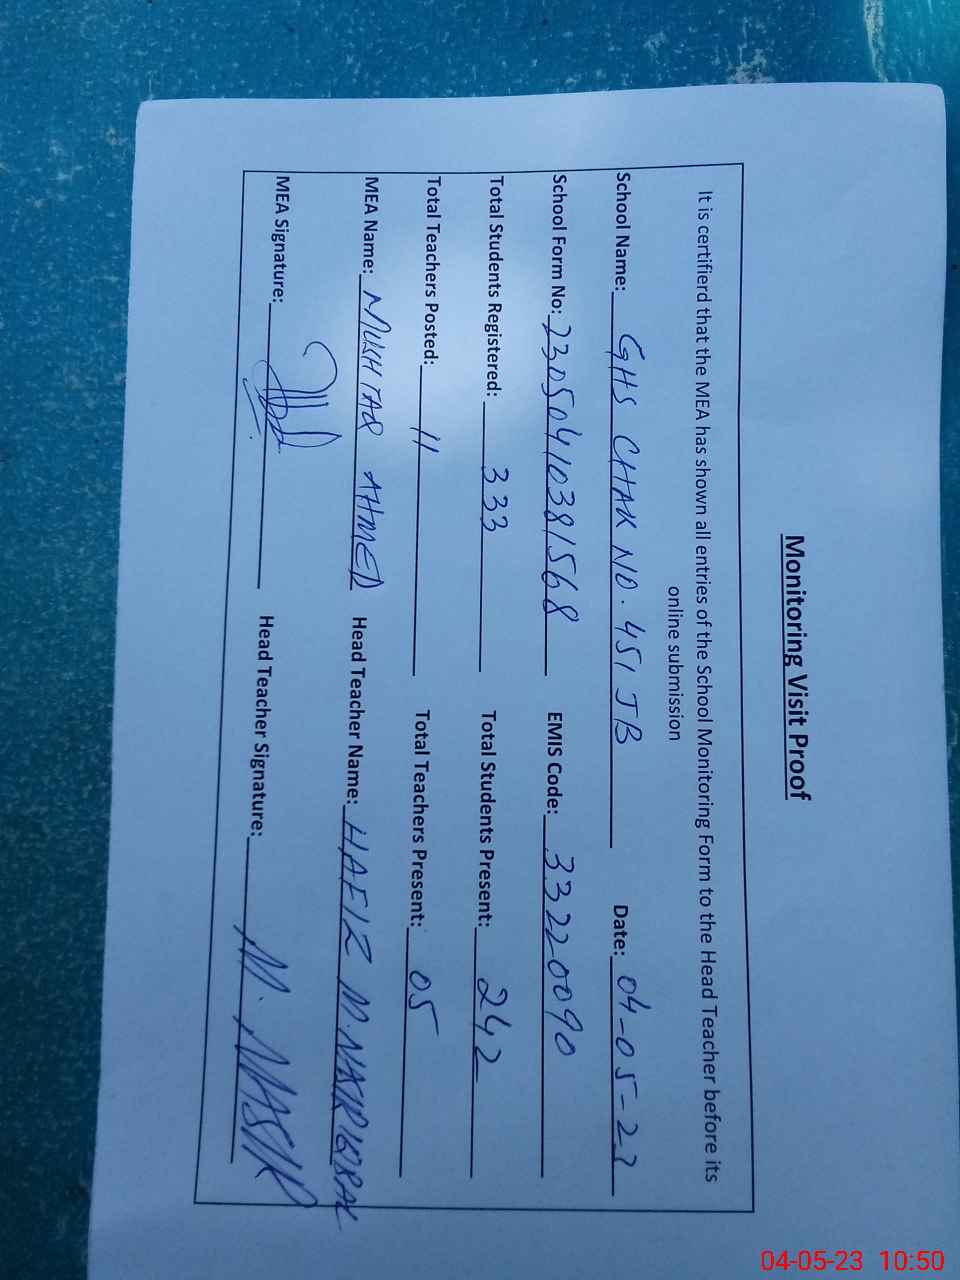 Monitoring Visit Proof
It is certifierd that the MEA has shown all entries of the School Monitoring Form to the Head Teacher before its
online submission
School Name: GHS CHAK NO. 451 JB Date: 04-05-23
School Form No: 23050410381568 EMIS Code: 33220090
Total Students Registered: 333 Total Students Present: 242
Total Teachers Posted: 11 Total Teachers Present: 05
MEA Name: MUSHTAQ AHMED Head Teacher Name: HAFIZ M. NASIR IQBAL
MEA Signature: Head Teacher Signature: M. NASIR
04-05-23 10:50